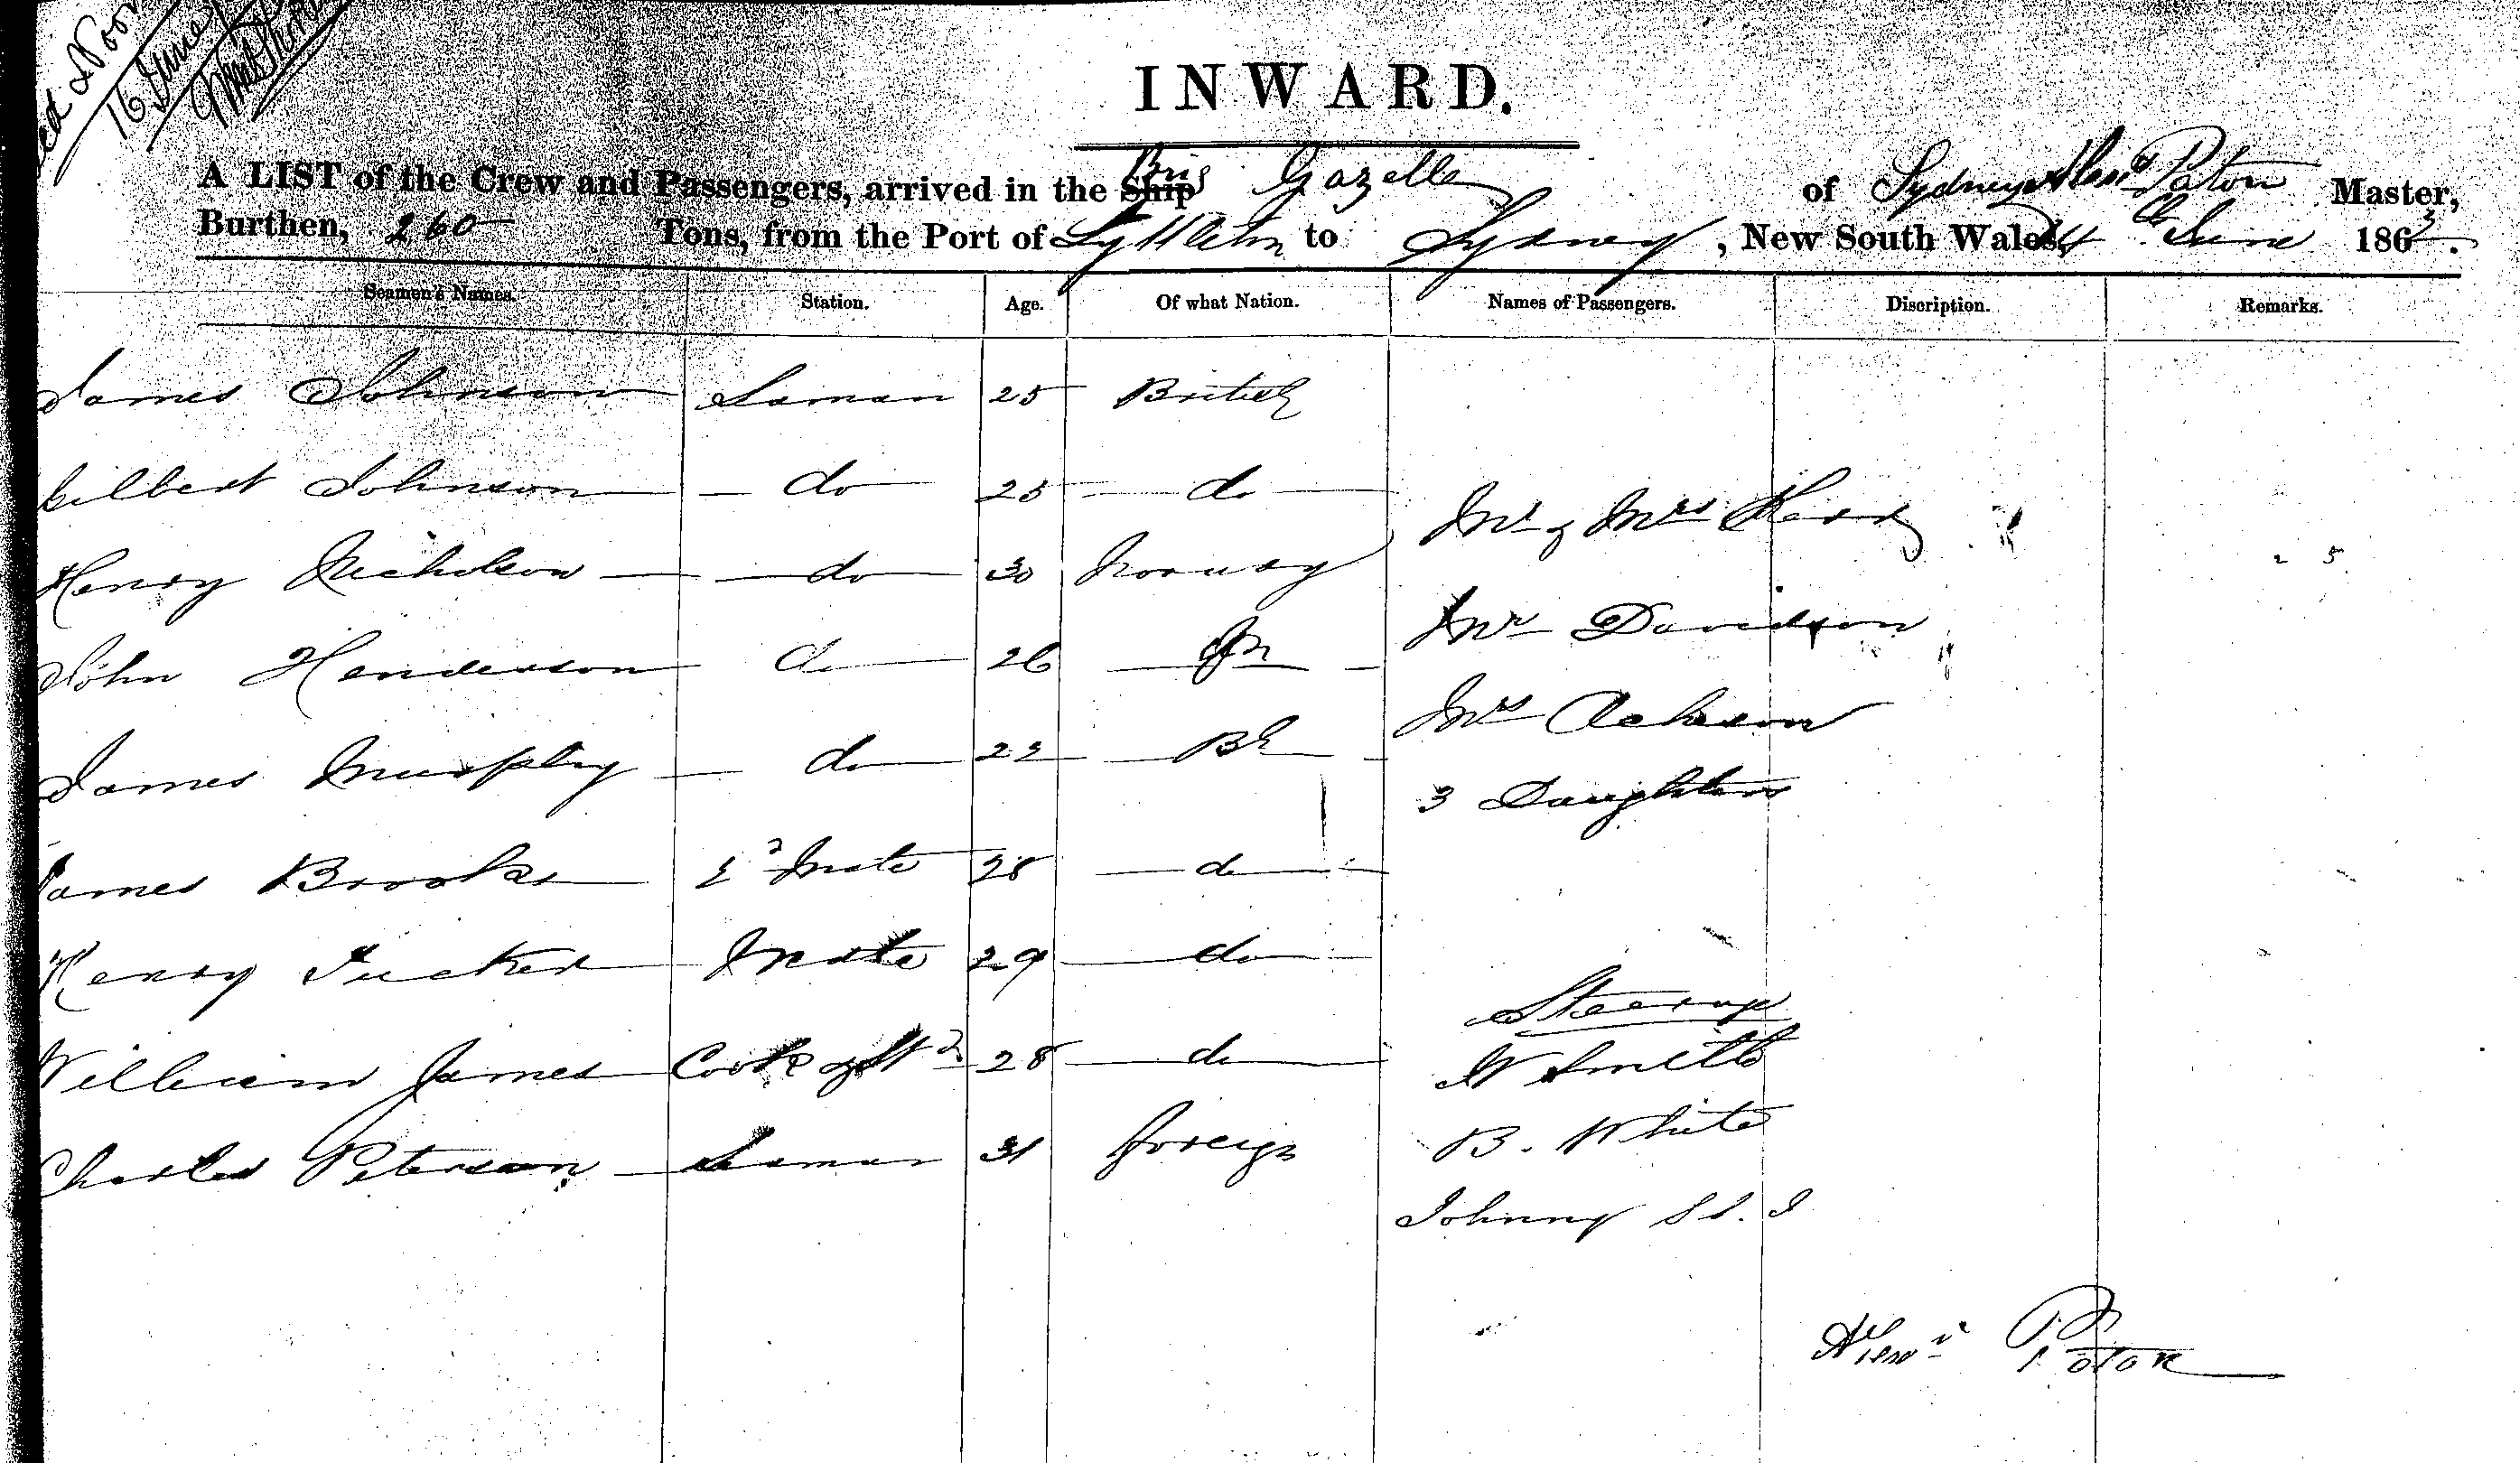 16 June
INWARD.
A LIST of the Crew and Passengers, arrived in the Ship Brig Gazelle of Sydney Alexr Paton Master,
Burthen, 260 Tons, from the Port of Lyttleton to Sydney, New South Wales 14 June 1863.
Seamen's Names. Station. Age. Of what Nation. Names of Passengers. Discription. Remarks.
James Johnson Seaman 25 British
Gilbert Johnson do 25 do
Mr & Mrs Kerr
Henry Nicholson do 30 Norway
Mr Davidson
John Henderson do 26
Mrs Acheson
James Murphy do 22 Bh
3 Daughters
James Brooks 2d Mate 28 do
Henry Tucker Mate 29 do
Steerage
William James Cook & Std 28 do
W Smith
Charles Peterson Seaman 31 foreign
B. White
Johnny S S. I
Alexr Paton